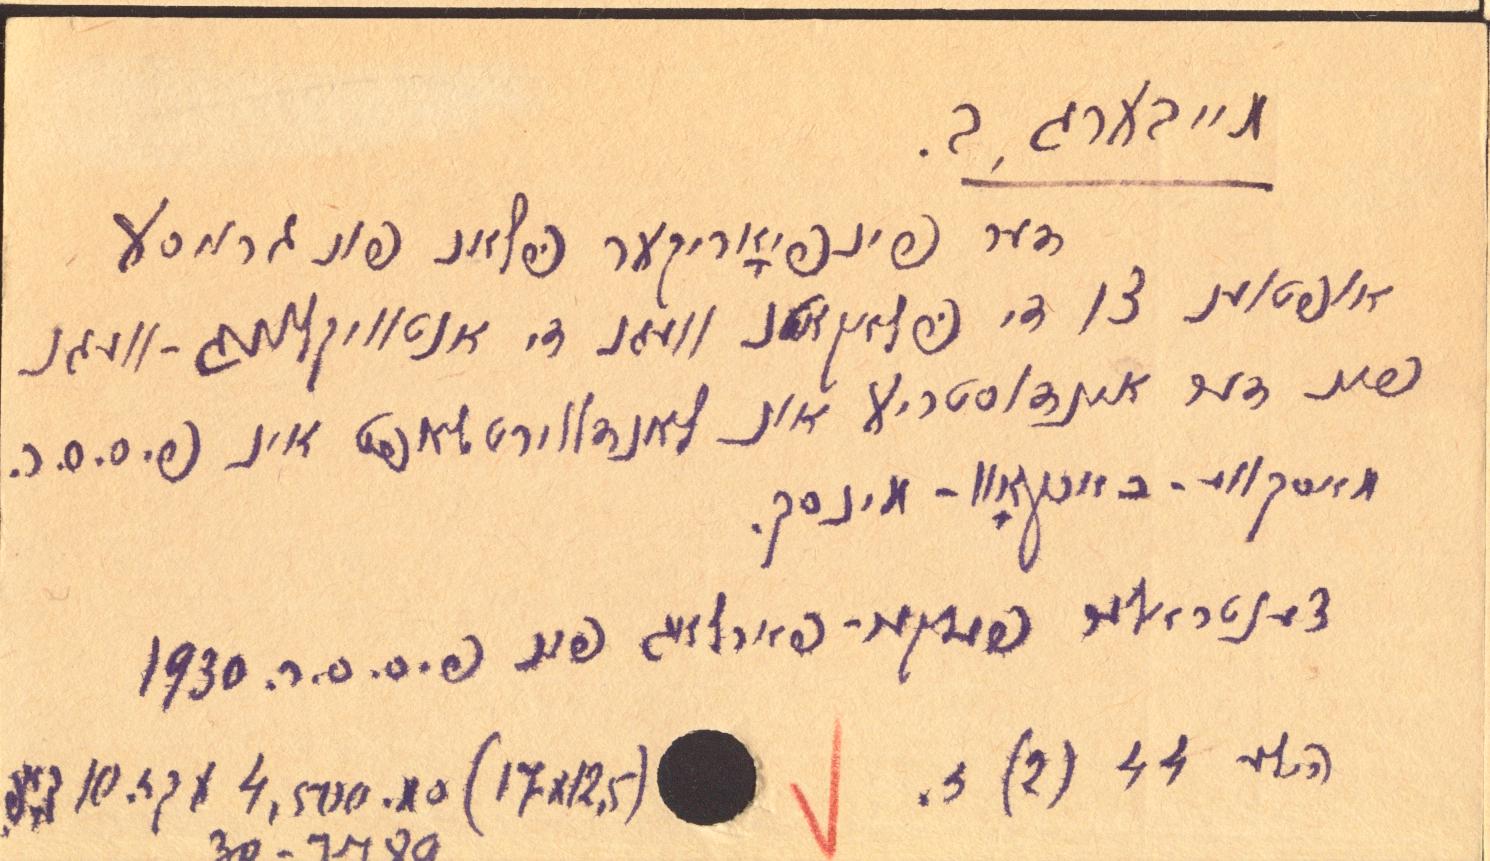 מייבערג, ב.
דער פינפיאָריקער פלאנ פונ גרויסע
ארבטונ צו די פלאקאטנ וועגנ די אנטוויקלונג-וועגנ
פונ דער אינדוסטריע אונ לאנדווירטשאפט אינ פ.ס.ס.ר.
מאסקווע - כארקאָוו - מינסק.
צענטראלער פעלקער-פארלאג פונ פ.ס.ס.ר. 1930
העלפט 44 (2) ז.
(17x12,5) סמ. 4,500 עקז. 10 קאפ.
30-7789